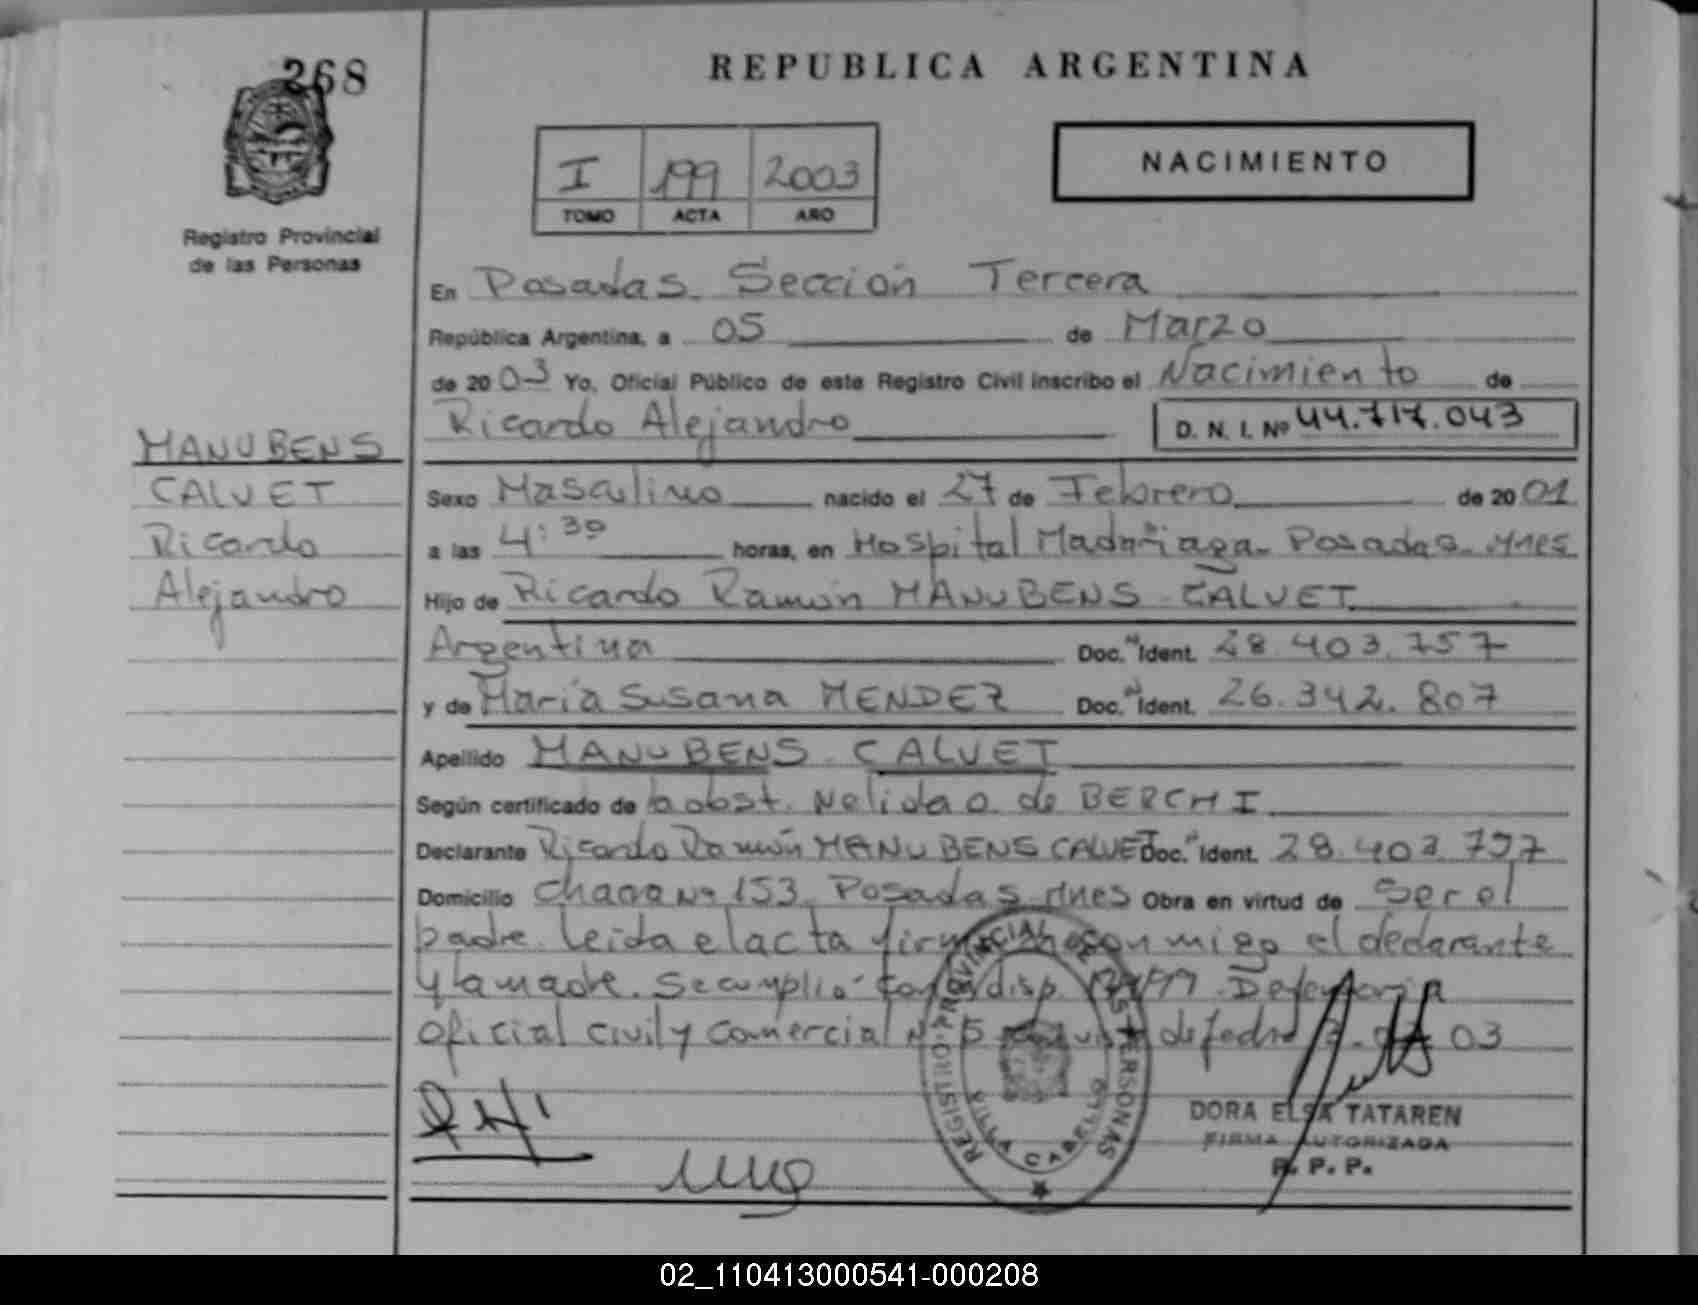 268
REPUBLICA ARGENTINA
I 199 2003
TOMO ACTA AÑO
NACIMIENTO
Registro Provincial
de las Personas
En Posadas Sección Tercera
República Argentina, a 05 de Marzo
de 2003 Yo, Oficial Público de este Registro Civil inscribo el Nacimiento de
Ricardo Alejandro D. N. I. Nº 44.717.043
MANUBENS
CALVET
Ricardo
Alejandro
Sexo Masculino nacido el 27 de Febrero de 2001
a las 4:30 horas, en Hospital Madariaga Posadas Mnes
Hijo de Ricardo Ramón MANUBENS CALVET
Argentina Doc. Ident. 28.403.757
y de María Susana MENDEZ Doc. Ident. 26.342.807
Apellido MANUBENS CALVET
Según certificado de la obst. Nelida O. de BERCHI
Declarante Ricardo Ramón MANUBENS CALVET Doc. Ident. 28.403.757
Domicilio Chacra Nº 153 Posadas Mnes Obra en virtud de Ser el
padre. Leida el acta firman conmigo el declarante
y la madre. Se cumplió con disp. Defensoria
Oficial Civil y Comercial Nº 5 de fecha 03
REGISTRO PROVINCIAL DE LAS PERSONAS
VILLA CABELLO
DORA ELSA TATAREN
FIRMA AUTORIZADA
R. P. P.
02_110413000541-000208